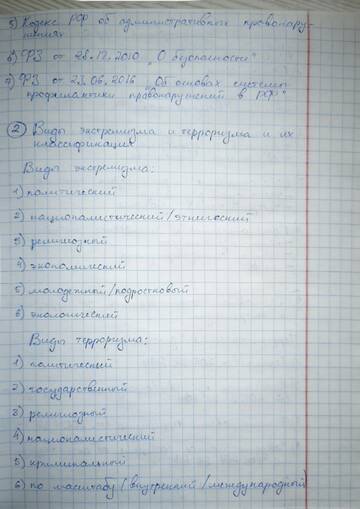 5) Кодекс РФ об административных правонару-
шениях
6) ФЗ от 28.12.2010 „О безопасности"
7) ФЗ от 23.06.2016 „Об основах системы
профилактики правонарушений в РФ"
2 Виды экстремизма и терроризма и их
классификация
Виды экстремизма:
1) политический
2) националистический/этнический
3) религиозный
4) экономический
5) молодежный/подростковый
6) экологический
Виды терроризма:
1) политический
2) государственный
3) религиозный
4) националистический
5) криминальный
6) по масштабу (внутренний/международный)